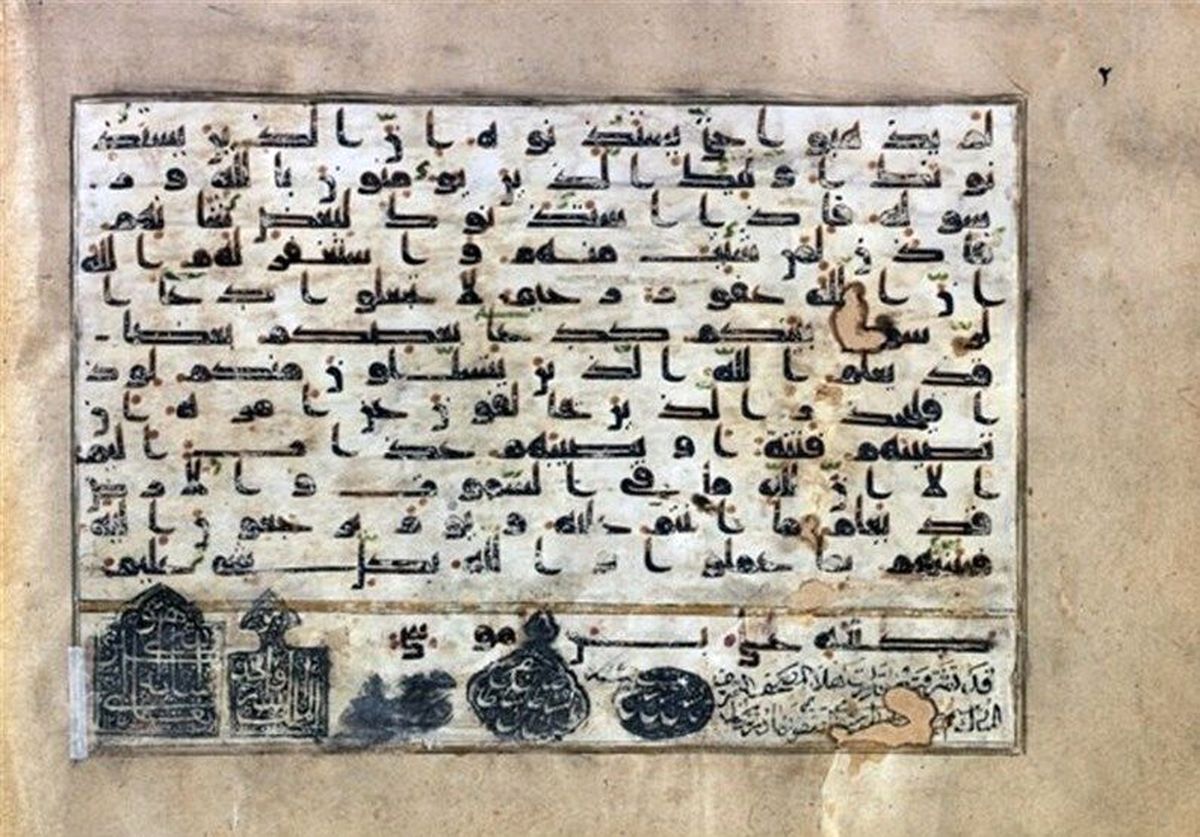 ٢
لم يذهبوا حتى يستئذنوه ان الذين يستئذ
نونك اولئك الذين يؤمنون بالله و ر
سوله فاذا استئذنوك لبعض شأنهم
فأذن لمن شئت منهم و استغفر لهم الله
ان الله غفور رحيم لا تجعلوا دعا ا
لرسو بينكم كدعا بعضكم بعضا
قد يعلم الله الذين يتسللون منكم لوذ
ا فليحذر الذين يخالفون عن امره ان
تصيبهم فتنة او يصيبهم عذاب اليم
الا ان لله ما في السموت و الارض
قد يعلم ما انتم عليه و يوم يرجعون اليه
فينبئهم بما عملوا و الله بكل شيء عليم
كتبه علي بن موسى
قد تشرفت بزيارت هذا المصحف الشريف